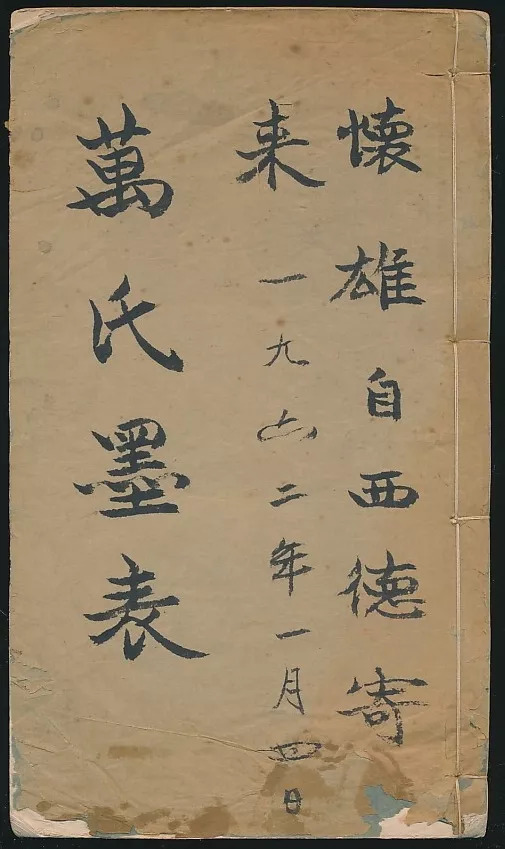 懐雄自西德寄
来一九六二年一月四日
萬氏墨表